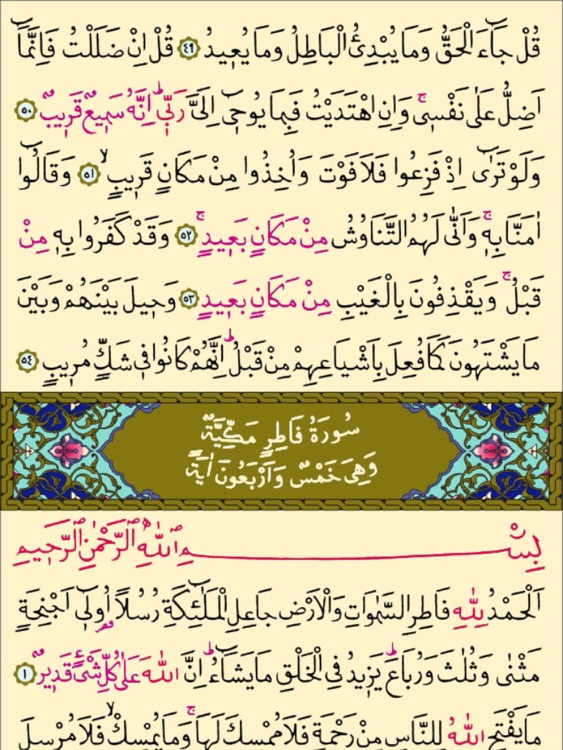 قُلْ جَٓاءَ الْحَقُّ وَمَا يُبْدِئُ الْبَاطِلُ وَمَا يُع۪يدُ ﴿٤٩﴾ قُلْ اِنْ ضَلَلْتُ فَاِنَّمَٓا
اَضِلُّ عَلٰى نَفْس۪يۚ وَاِنِ اهْتَدَيْتُ فَبِمَا يُوح۪ٓي اِلَيَّ رَبّ۪يۜ اِنَّهُ سَم۪يعٌ قَر۪يبٌ ﴿٥٠﴾
وَلَوْ تَرٰٓى اِذْ فَزِعُوا فَلَا فَوْتَ وَاُخِذُوا مِنْ مَكَانٍ قَر۪يبٍۙ ﴿٥١﴾ وَقَالُٓوا
اٰمَنَّا بِه۪ۚ وَاَنّٰى لَهُمُ التَّنَاوُشُ مِنْ مَكَانٍ بَع۪يدٍۚ ﴿٥٢﴾ وَقَدْ كَفَرُوا بِه۪ مِنْ
قَبْلُۚ وَيَقْذِفُونَ بِالْغَيْبِ مِنْ مَكَانٍ بَع۪يدٍ ﴿٥٣﴾ وَح۪يلَ بَيْنَهُمْ وَبَيْنَ
مَا يَشْتَهُونَ كَمَا فُعِلَ بِاَشْيَاعِهِمْ مِنْ قَبْلُۜ اِنَّهُمْ كَانُوا ف۪ي شَكٍّ مُر۪يبٍ ﴿٥٤﴾
سُورَةُ فَاطِرٍ مَكِّيَّةٌ
وَهِيَ خَمْسٌ وَاَرْبَعُونَ اٰيَةً
بِسْمِ اللّٰهِ الرَّحْمٰنِ الرَّح۪يمِ
اَلْحَمْدُ لِلّٰهِ فَاطِرِ السَّمٰوَاتِ وَالْاَرْضِ جَاعِلِ الْمَلٰٓئِكَةِ رُسُلًا اُو۬ل۪ٓي اَجْنِحَةٍ
مَثْنٰى وَثُلٰثَ وَرُبَاعَۜ يَز۪يدُ فِي الْخَلْقِ مَا يَشَٓاءُۜ اِنَّ اللّٰهَ عَلٰى كُلِّ شَيْءٍ قَد۪يرٌ ﴿١﴾
مَا يَفْتَحِ اللّٰهُ لِلنَّاسِ مِنْ رَحْمَةٍ فَلَا مُمْسِكَ لَهَاۚ وَمَا يُمْسِكْۙ فَلَا مُرْسِلَ